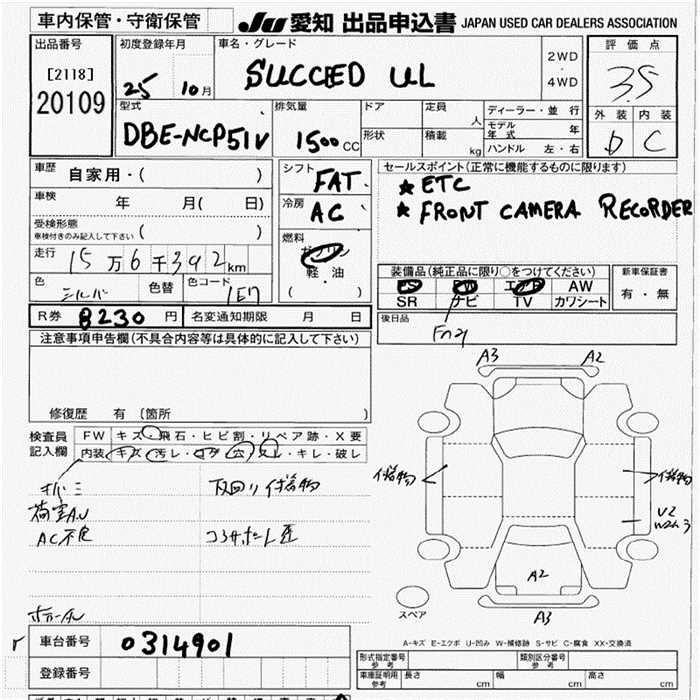 車内保管・守衛保管
JU 愛知 出品申込書 JAPAN USED CAR DEALERS ASSOCIATION
出品番号
[2118]
20109
初度登録年月
25 10月
車名・グレード
SUCCEED UL
2WD
・
4WD
評価点
3.5
外装 内装
D C
型式
DBE-NCP51V
排気量
1500 CC
ドア
形状
定員
人
積載
kg
ディーラー・並行
モデル年式 年
ハンドル 左・右
車歴
自家用・( )
車検 年 月( 日)
受検形態
車検付きのみ記入して下さい ( )
走行 15万6千392km
色 シルバー 色替 色コード 1E7
シフト
FAT
冷房
AC
燃料
ガソリン
軽・油
( ・ )
セールスポイント(正常に機能するものに限ります)
★ ETC
★ FRONT CAMERA RECORDER
装備品(純正品に限り○をつけてください)
PS PW エアB AW
SR ナビ TV カワシート
新車保証書
有・無
R券 8230円 名変通知期限 月 日
後日品
注意事項申告欄(不具合内容等は具体的に記入して下さい)
修復歴 有 (箇所 )
検査員
記入欄
FW キズ・飛石・ヒビ割・リペア跡・X要
内装 キズ・汚レ・コゲ・穴・スレ・キレ・破レ
AC不良
A3 A2
A2
A3
スペア
A-キズ E-エクボ U-凹み W-補修跡 S-サビ C-腐食 XX-交換済
車台番号 0314901
登録番号
形式指定番号
参考
類別区分番号
参考
車庫証明用
参考
長さ cm 幅 cm 高さ cm